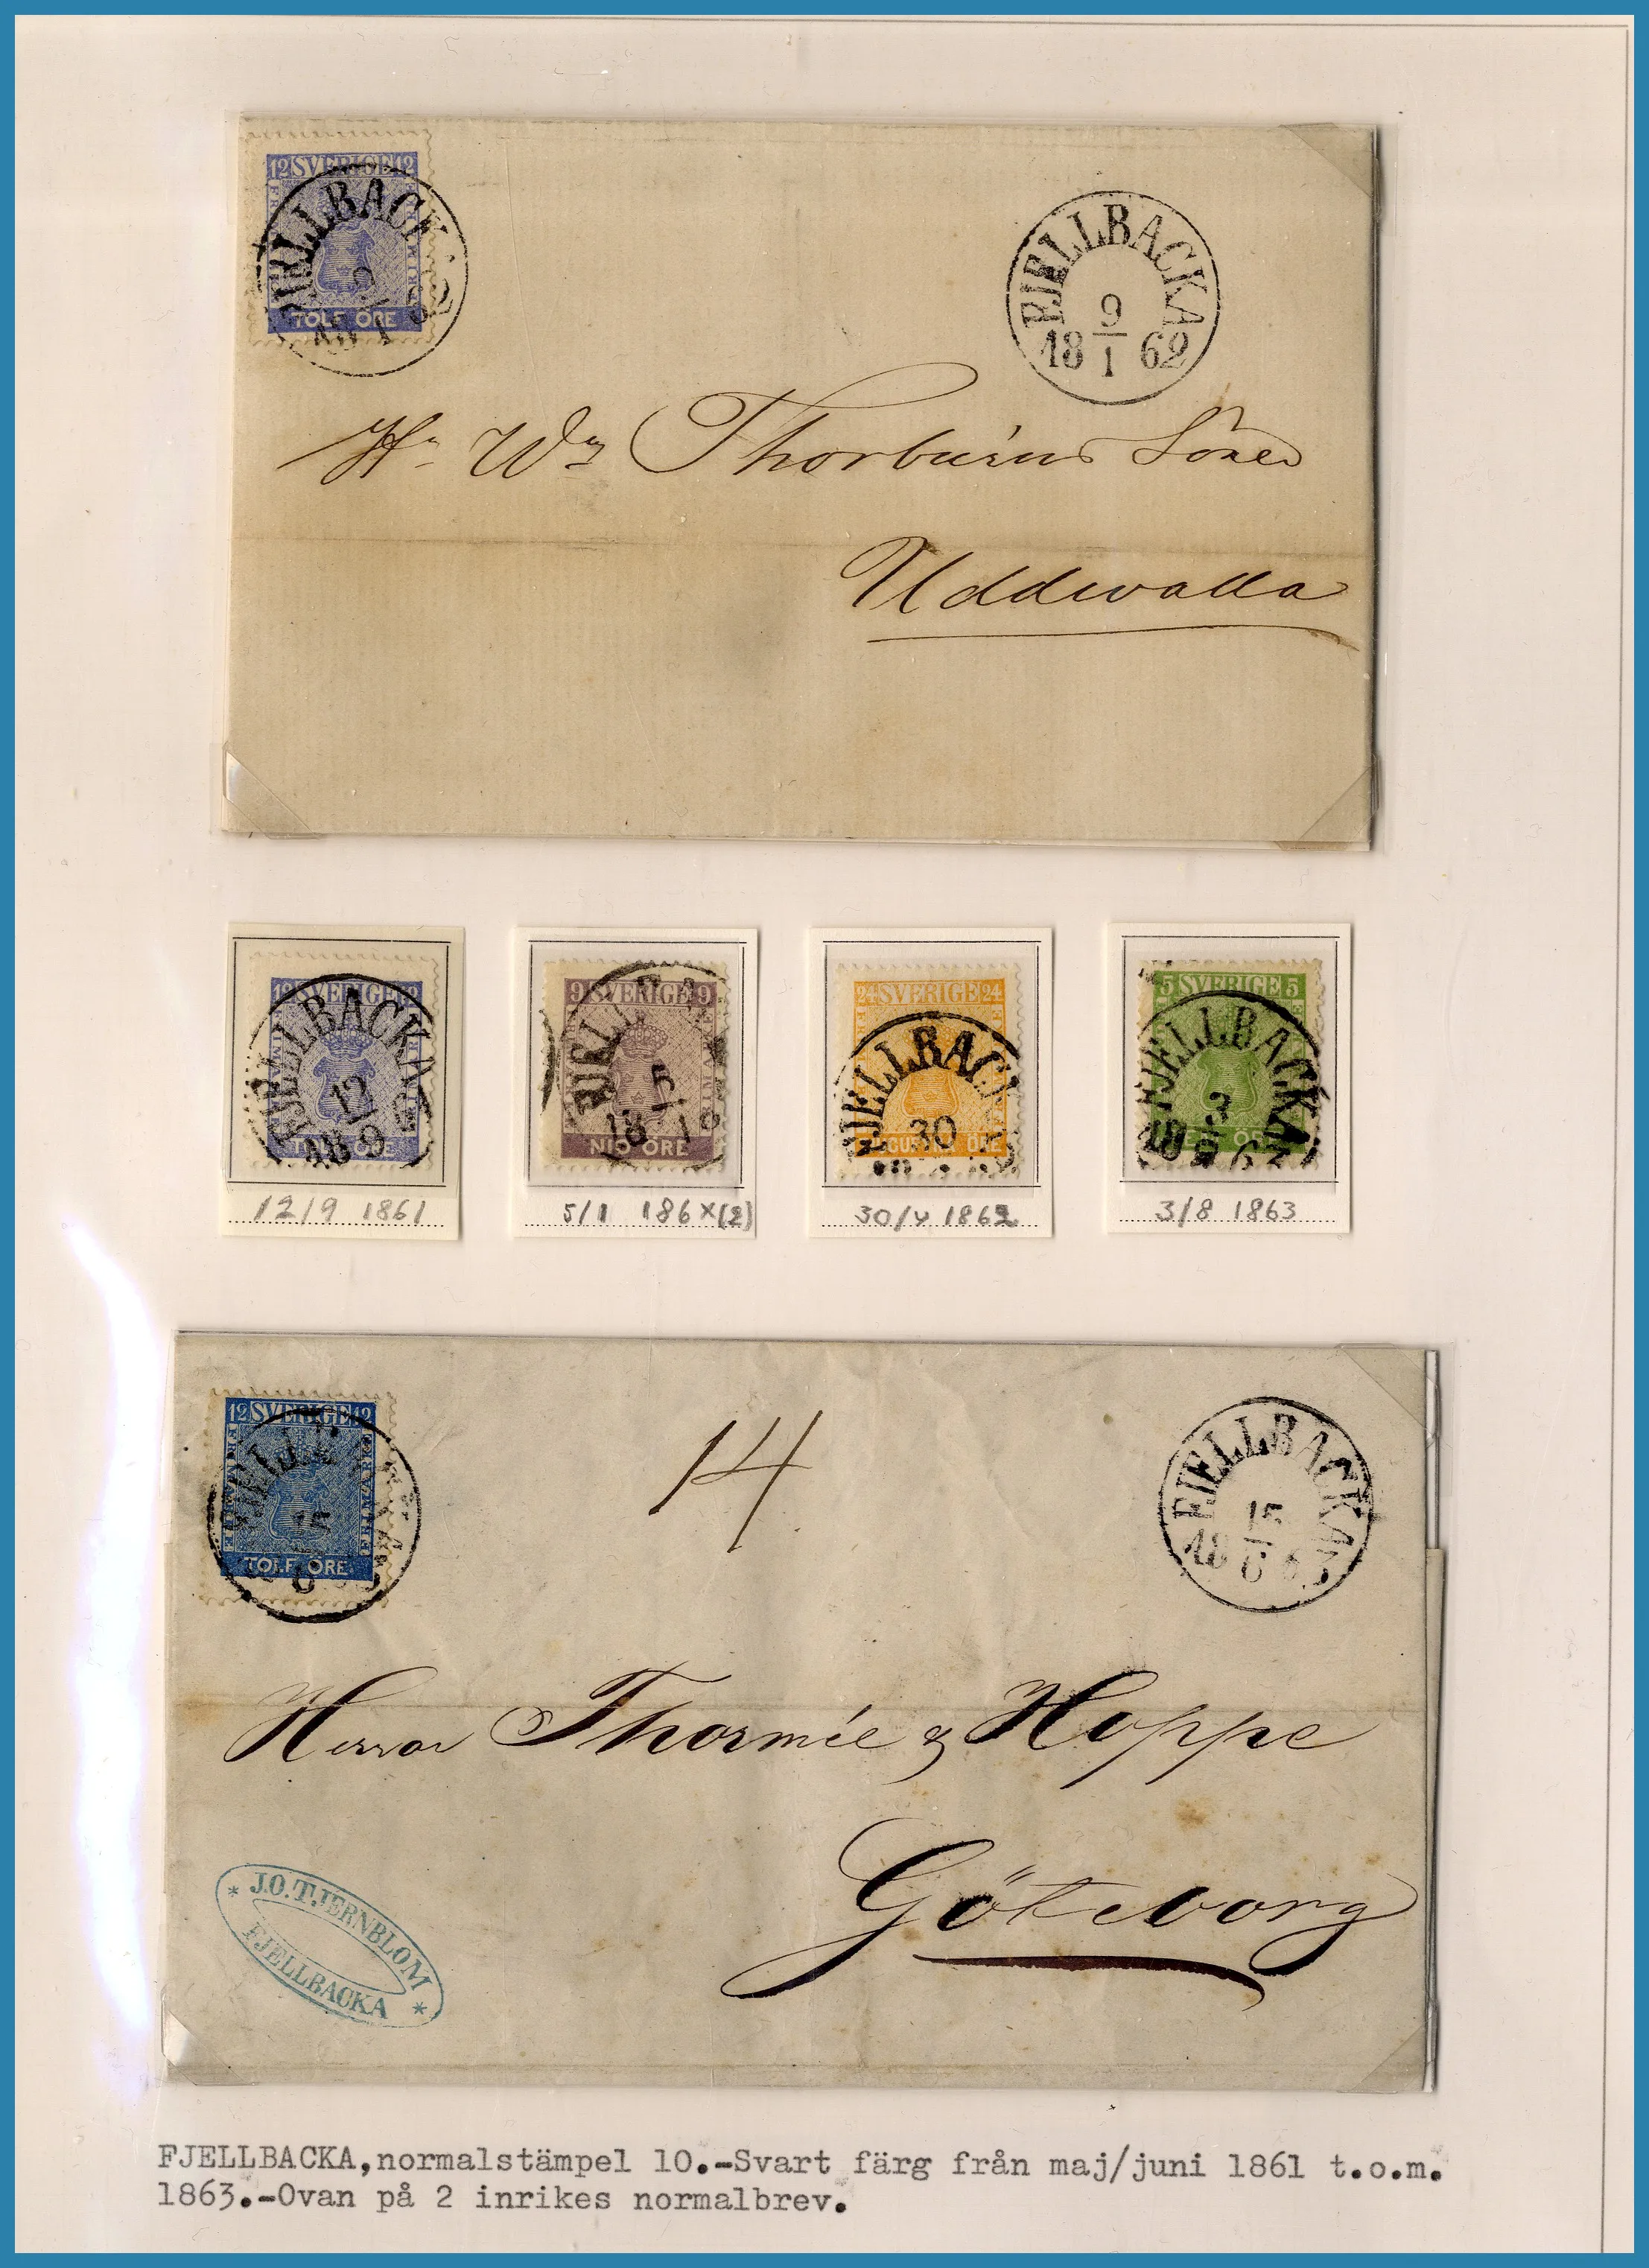 12 SVERIGE 12
FJELLBACK
9
18 1 62
TOLF ÖRE
FJELLBACKA
9
18 1 62
Hr Wm Thorburns Söner
Uddewalla
12 SVERIGE 12
FJELLBACKA
12
18 9 6
TOLF ÖRE
12/9 1861
9 SVERIGE 9
5
18 1
NIO ÖRE
5/1 186X(2)
24 SVERIGE 24
FJELLBACK
30
ÖRE
30/4 1862
5 SVERIGE 5
FJELLBACKA
3
18 8 63
ÖRE
3/8 1863
12 SVERIGE 12
FRIMÄRKE
15
6
TOLF ÖRE
14
FJELLBACKA
15
18 6 63
Herrar Thormée & Hoppe
Götewborg
* J.O.TJERNBLOM *
FJELLBACKA
FJELLBACKA,normalstämpel 10.-Svart färg från maj/juni 1861 t.o.m.
1863.-Ovan på 2 inrikes normalbrev.